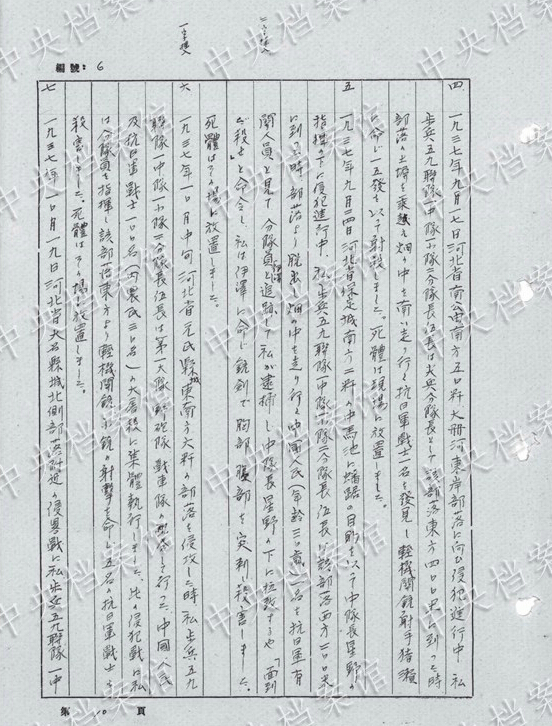 編號: 6
四 一九三七年九月十七日河北省南公由南方五〇料大冊河東岸部落に向ひ侵犯進行中 私
歩兵五九聯隊一中隊一小隊三分隊長伍長は尖兵分隊長として該部落東方四〇〇米に到った時
部落の土塀を乗越え畑の中を南へ走り行く抗日軍戦士一名を發見し軽機関銃射手猪瀬
に命じ一五發をもって射殺しました。死體は現場に放置しました。
五 一九三七年九月二四日河北省保定城南方二料の中馬池に蟠踞の目的をもって中隊長星野の
指揮の下に侵犯進行中、私歩兵五九聯隊一中隊一小隊三分隊長伍長は該部落西方二〇〇米
に到った時部落より脱出し畑の中を走り行く中国人民(年齢三〇歳)一名を抗日軍有
関人員と見て分隊員と追跡して私が逮捕し中隊長星野の下に拉致するや「面倒
だ殺せ」と命令し私は伊澤に命じ銃剣で胸部腹部を突刺し殺害しました。
死體はその場に放置しました。
六 一九三七年一〇月中旬河北省元氏縣城東南方六料の部落を侵攻した時私歩兵五九
聯隊一中隊一小隊三分隊長伍長は第一大隊、野砲隊、戦車隊の
行った、中國人民
及抗日軍戦士一〇〇名(内農民三〇名)の大虐殺に集體執行しました。此の侵犯戦に私
は分隊員を指揮し該部落東方より軽機関銃小銃の射撃を命じ五名の抗日軍戦士を
殺害しました。死體はその場に放置しました。
七 一九三七年一〇月一九日河北省大名縣城北側部落附近の侵畧戦に私歩兵五九聯隊一中
第 10 頁
中央档案馆